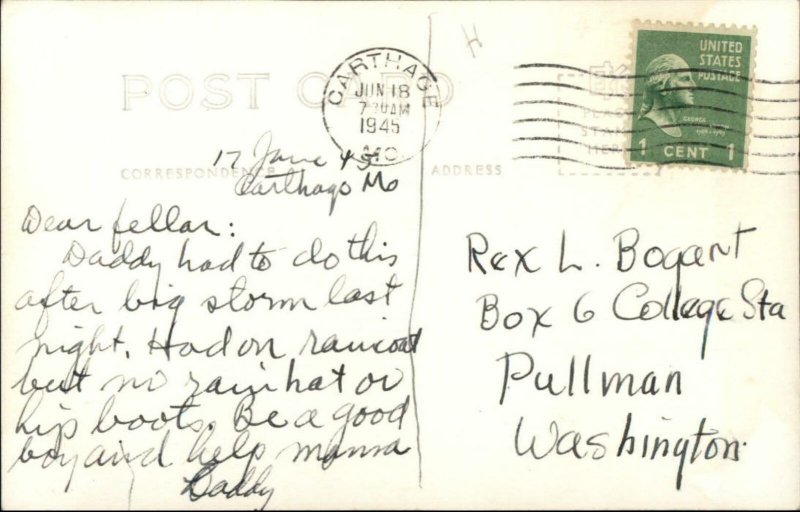 H
POST CARD
CARTHAGE
JUN 18
7 30 AM
1945
MO.
UNITED
STATES
POSTAGE
GEORGE
1 CENT 1
PLACE
STAMP
HERE
CORRESPONDENCE
ADDRESS
17 June 45
Carthage Mo
Dear fellar:
Daddy had to do this
after big storm last
night. Had on raincoat
but no rain hat or
hip boots. Be a good
boy and help mama
Daddy
Rex L. Bogart
Box 6 College Sta
Pullman
Washington.